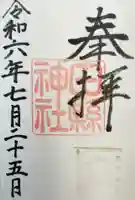 奉拝
神社
令和六年七月二十五月